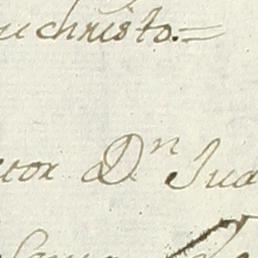 uchristo.=
ctor Dn Jua